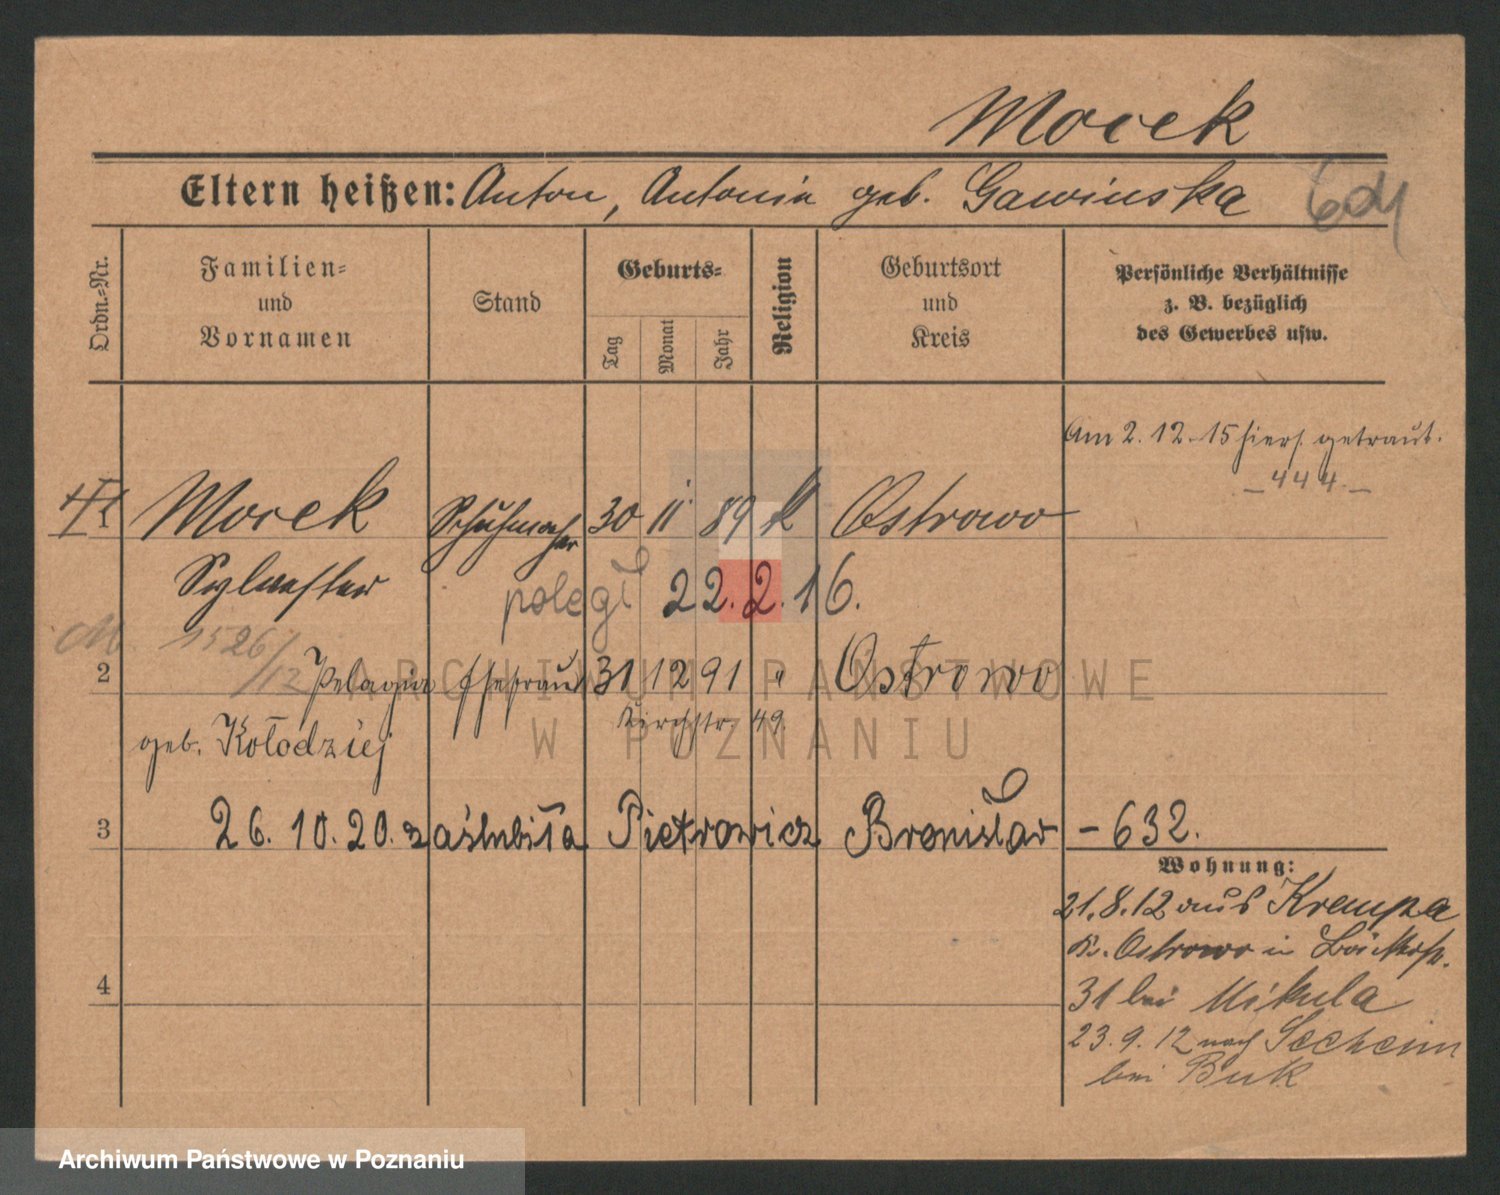 Morek
Eltern heißen: Anton, Antonia geb. Gawinska
Ordn.-Nr.
Familien-
und
Vornamen
Stand
Geburts-
Tag
Monat
Jahr
Religion
Geburtsort
und
Kreis
Persönliche Verhältnisse
z. B. bezüglich
des Gewerbes usw.
Am 2.12.15 hiers. getraut.
– 444. –
1 Morek Schuhmacher 30 11 89 k Ostrowo
Sylvester
poległ 22.2.16.
M. 1526/12
2 Pelagia Ehefrau 31 12 91 " Ostrowo
Kirchstr. 49.
geb. Kołodziej
3 26.10.20. zaślubiła Pietrowicz Bronisław – 632.
Wohnung:
21.8.12 aus Krempa
Kr. Ostrowo in
31 bei Mikula
4
23.9.12 nach
bei Buk
ARCHIWUM PAŃSTWOWE
W POZNANIU
Archiwum Państwowe w Poznaniu